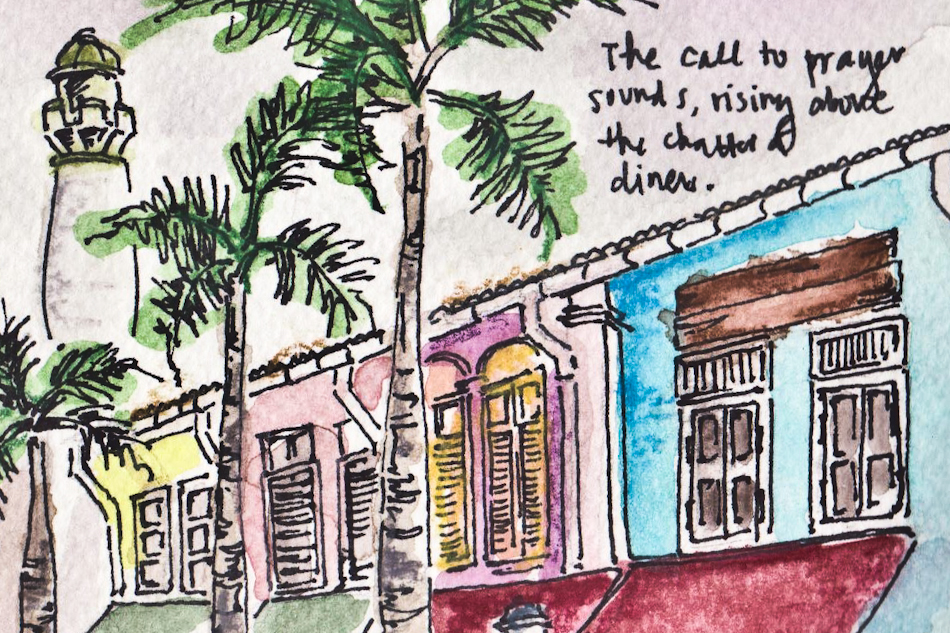 The call to prayer
sounds, rising above
the chatter of
diners.